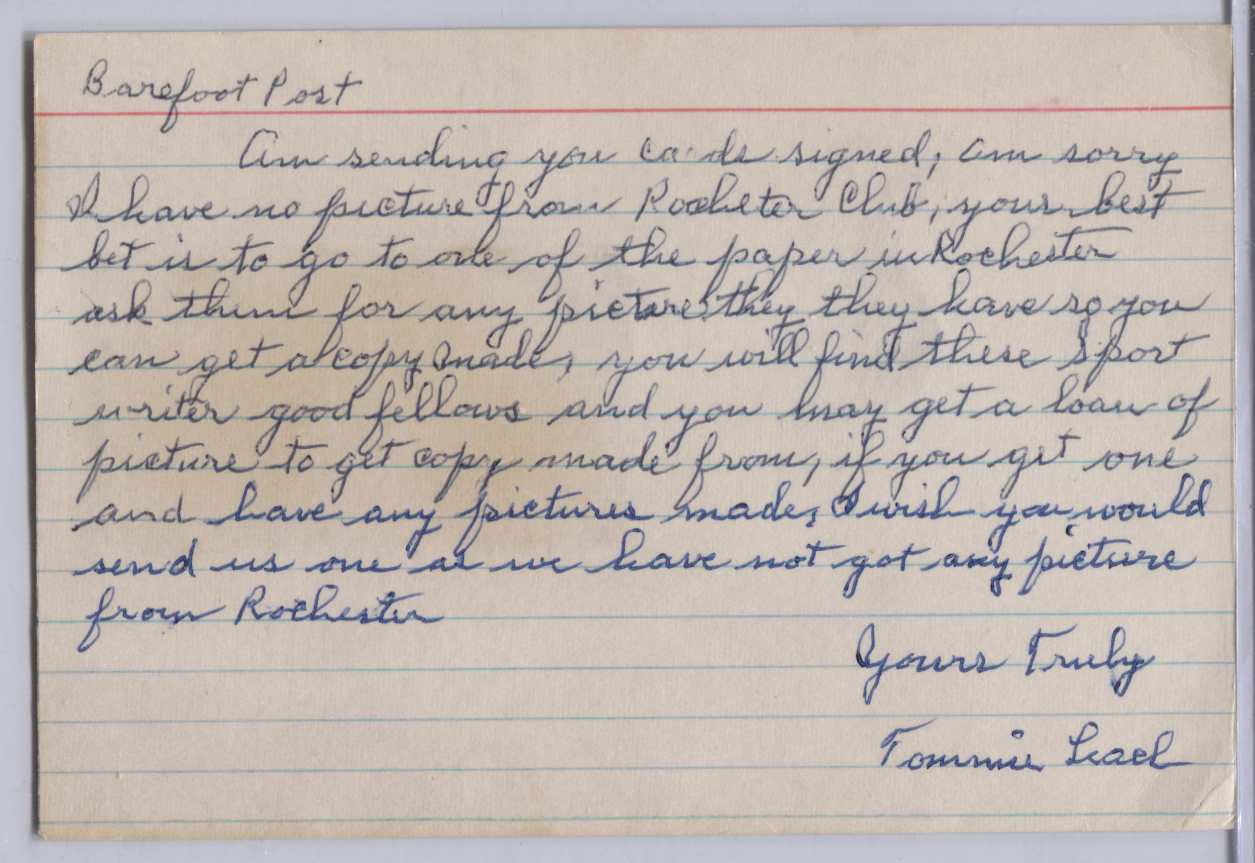 Barefoot Post
Am sending you cards signed, am sorry
I have no picture from Rocheter Club, your best
bet is to go to one of the paper in Rochester
ask them for any picture they they have so you
can get a copy made, you will find these sport
writer good fellows and you may get a loan of
picture to get copy made from, if you get one
and have any pictures made, I wish you would
send us one as we have not got any picture
from Rochester
Yours Truly
Tommie Leach